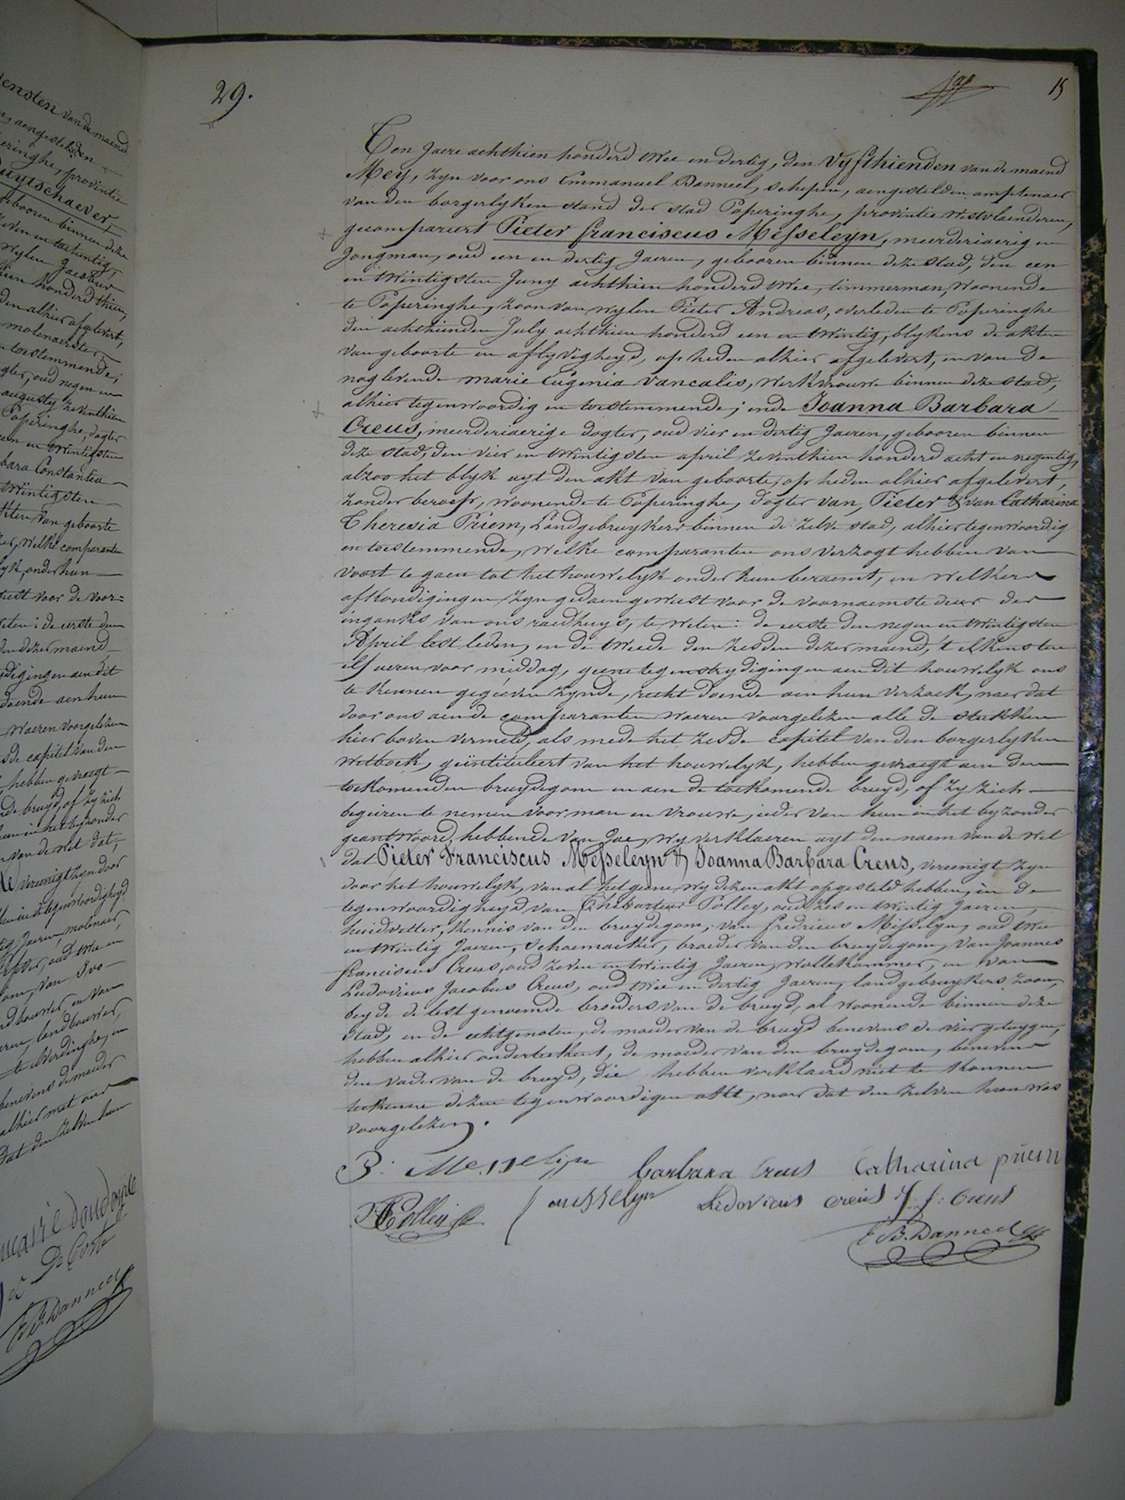 ensten van de maend
aengestelden
eringhe, provintie
uytschaever,
gebooren binnen deze
wylen Jacobus
honderd thien,
den alhier afgelevert,
molenaerster
toestemmende;
oud negen en
augusty zeventhien
Poperinghe, dogter
en twintigsten
bara Constantia
twintigsten
akten van geboorte
welke comparanten
onder hun
voor de voor=
weten: de eerste den
dezer maend
aen dit
doende aen hun
waeren voorgelezen
sde capitel van den
hebben gevraegt
de bruyd, of zy zich
hun in het byzonder
van de wet dat,
vereenigt zyn door
29.
15
Ten Jaere achthien honderd twee en dertig, den Vyfthienden van de maend
Mey, zyn voor ons Emmanuel Danneel, schepen, aengestelden amptenaer
van den borgerlyken stand der stad Poperinghe, provintie Westvlaenderen,
gecompareert Pieter franciscus Messeleyn, meerderjaerigen
Jongman, oud een en dertig Jaeren, gebooren binnen deze stad, den een
en twintigsten Juny achthien honderd twee, timmerman, woonende
te Poperinghe, zoon van wylen Pieter Andreas, overleden te Poperinghe
den achthienden July achthien honderd een en twintig, blykens de akten
van geboorte en aflyvigheyd, op heden alhier afgelevert, en van de
naglevende marie Eugenia Vancalis, werkvrouwe binnen deze stad,
alhier tegenwoordig en toestemmende; ende Joanna Barbara
Creus, meerderjaerige dogter, oud vier en dertig Jaeren, gebooren binnen
deze stad, den vier en twintigsten april zeventhien honderd acht en negentig,
alzoo het blyk uyt den akt van geboorte, op heden alhier afgelevert,
zonder beroep, woonende te Poperinghe, dogter van Pieter & van Catharina
Theresia Priem, Landgebruykers binnen de zelve stad, alhier tegenwoordig
en toestemmende, welke comparanten ons verzogt hebben van
voort te gaen tot het houwelyk onder hun beraemt, en welkers
afkondigingen zyn gedaen geweest voor de voornaemste deur der
inganks van ons raedhuys, te weten: de eerste den negen en twintigsten
April lest leden, en de tweede den zesden dezer maend, 't elkens ten
elf ueren voor middag, geene tegenstrydigingen aen dit houwelyk ons
te kennen gegeeven zynde, recht doende aen hun verzoek, naer dat
door ons aen de comparanten waeren voorgelezen alle de stukken
hier boven vermeld, als mede het zesde capitel van den borgerlyken
wetboek, geintituleert van het houwelyk, hebben gevraegt aen den
toekomenden bruydegom en aen de toekomende bruyd, of zy zich
begeeren te nemen voor man en vrouwe, ieder van hun in het byzonder
geantwoord hebbende van Jae, wy verklaeren uyt den naem van de wet
dat Pieter Franciscus Messeleyn & Joanna Barbara Creus, vereenigt zyn
door het houwelyk, van al het geene wy dezen akt opgesteld hebben, in de
tegenwoordigheyd van Polley, oud zes en twintig Jaeren,
huidvetter, kennis van den bruydegom, van fredricus Messelyn, oud twee
en twintig Jaeren, schoemaeker, broeder van den bruydegom, van Joannes
franciscus Creus, oud zeven en twintig Jaeren, wollekammer, en van
Ludovicus Jacobus Creus, oud twee en dertig Jaeren, landgebruykers zoon,
beyde de lest genoemde broeders van de bruyd, al woonende binnen deze
stad, en de echtgenoten, de moeder van de bruyd benevens de vier getuygen,
hebben alhier onderteekent, de moeder van den bruydegom, benevens
den vader van de bruyd, die hebben verklaerd niet te konnen
teekenen dezen tegenwoordigen akt, naer dat den zelven hun was
voorgelezen.
P: Messelyn barbara Creus Catharina priem
Polley messelyn Ludovicus Creus J. f: Creus
E B. Danneel